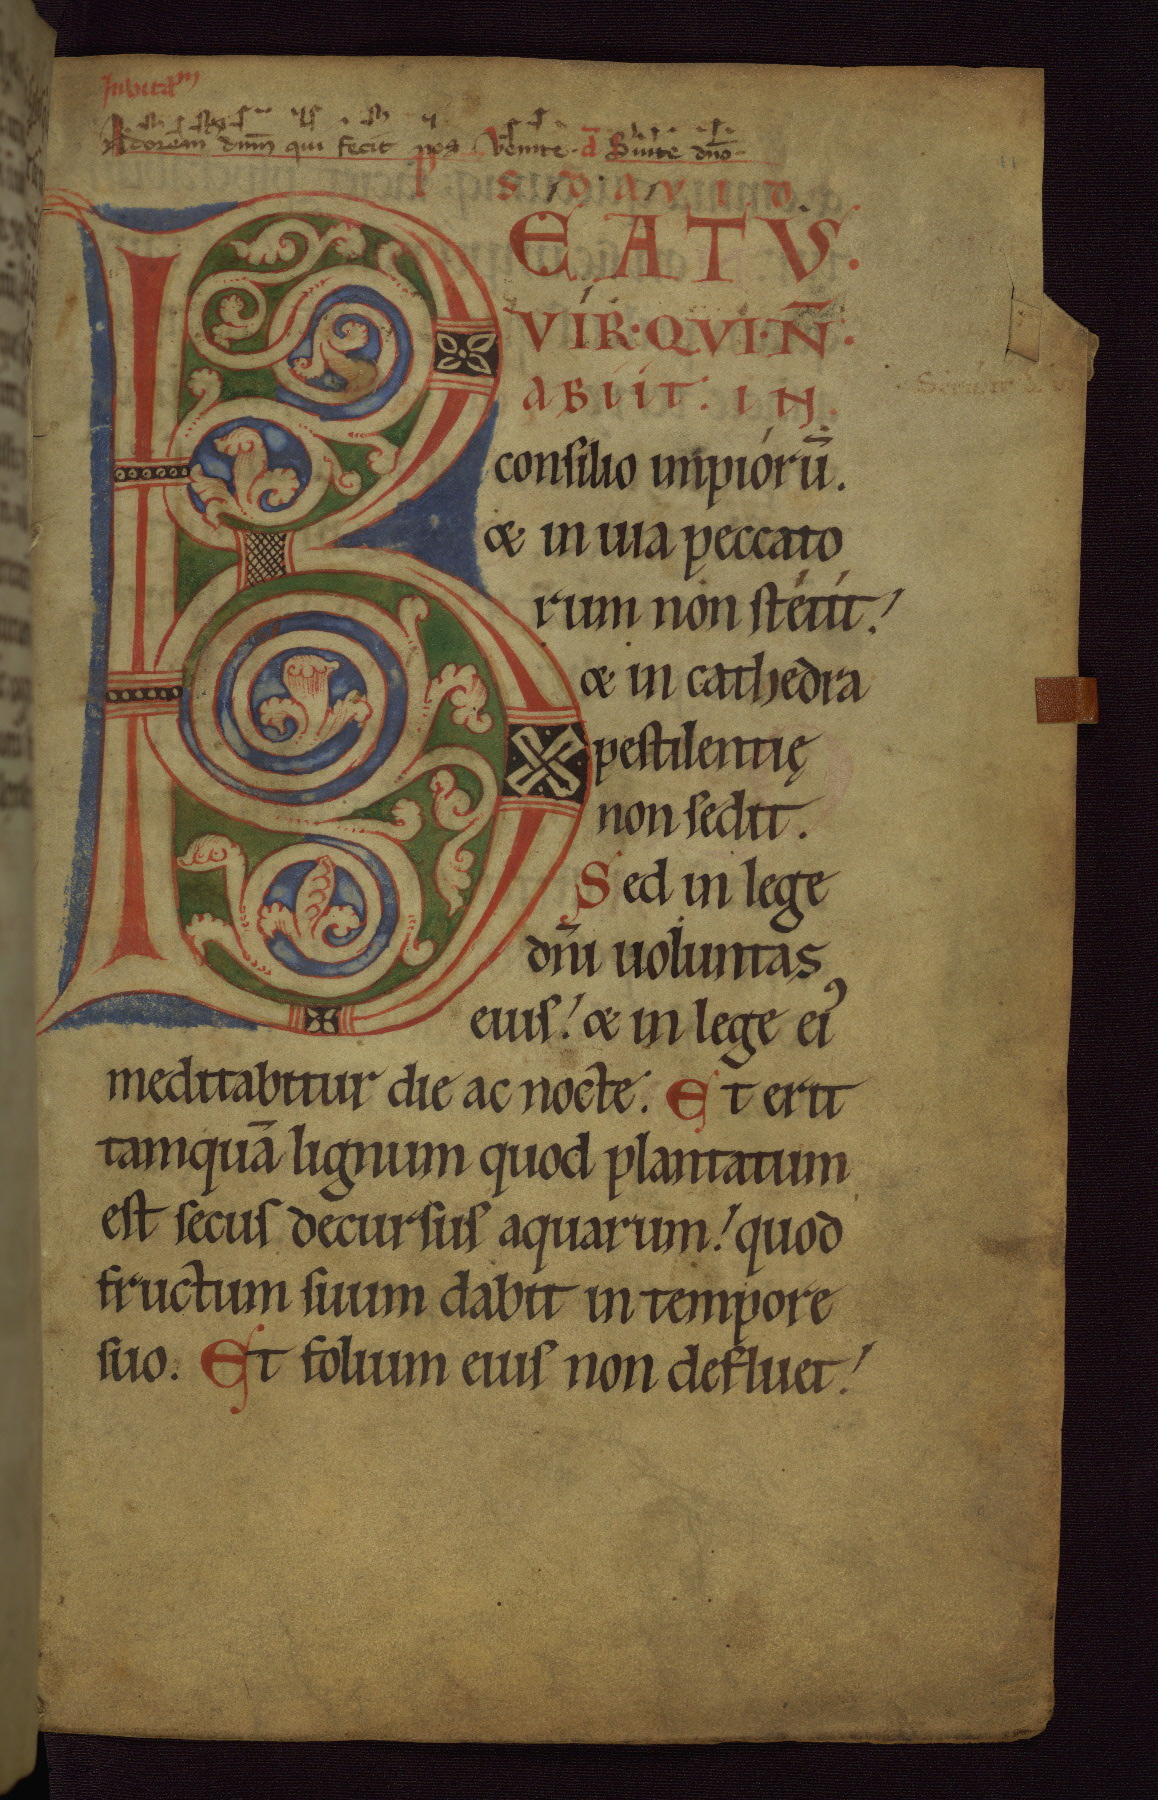 Invitat m
Adorem dnm qui fecit nos Venite. a Suite dno.
Ps. DAVID.
BEATUS.
VIR·QVI·Ñ·
ABIIT. IN.
consilio impiorū.
& in uia peccato
rum non stetit!
& in cathedra
pestilentię
non sedit.
Sed in lege
dn̄i uoluntas
eius! & in lege ei᾽
meditabitur die ac nocte. Et erit
tamquā lignum quod plantatum
est secus decursus aquarum! quod
fructum suum dabit in tempore
suo. Et folium eius non defluet!